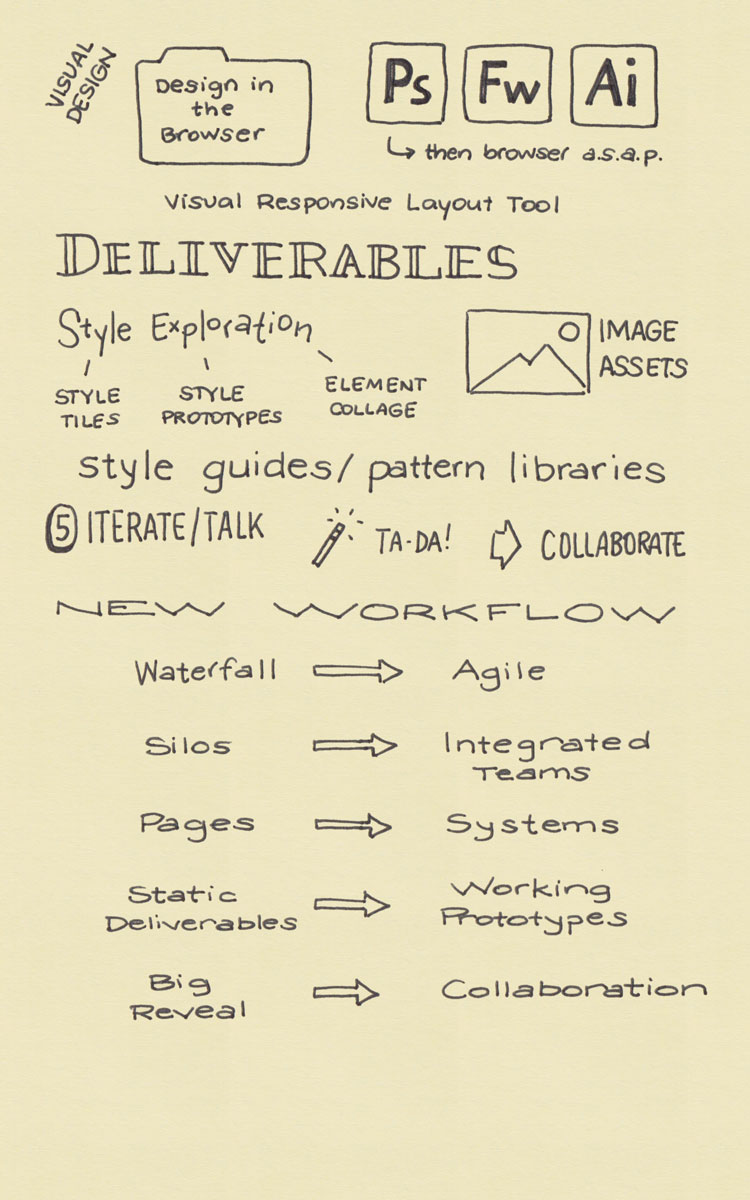 VISUAL
DESIGN
Design in
the
Browser
Ps Fw Ai
then browser a.s.a.p.
Visual Responsive Layout Tool
DELIVERABLES
Style Exploration
STYLE
TILES
STYLE
PROTOTYPES
ELEMENT
COLLAGE
IMAGE
ASSETS
style guides/pattern libraries
5 ITERATE/TALK
TA-DA!
COLLABORATE
NEW WORKFLOW
Waterfall
Agile
Silos
Integrated
Teams
Pages
Systems
Static
Deliverables
Working
Prototypes
Big
Reveal
Collaboration